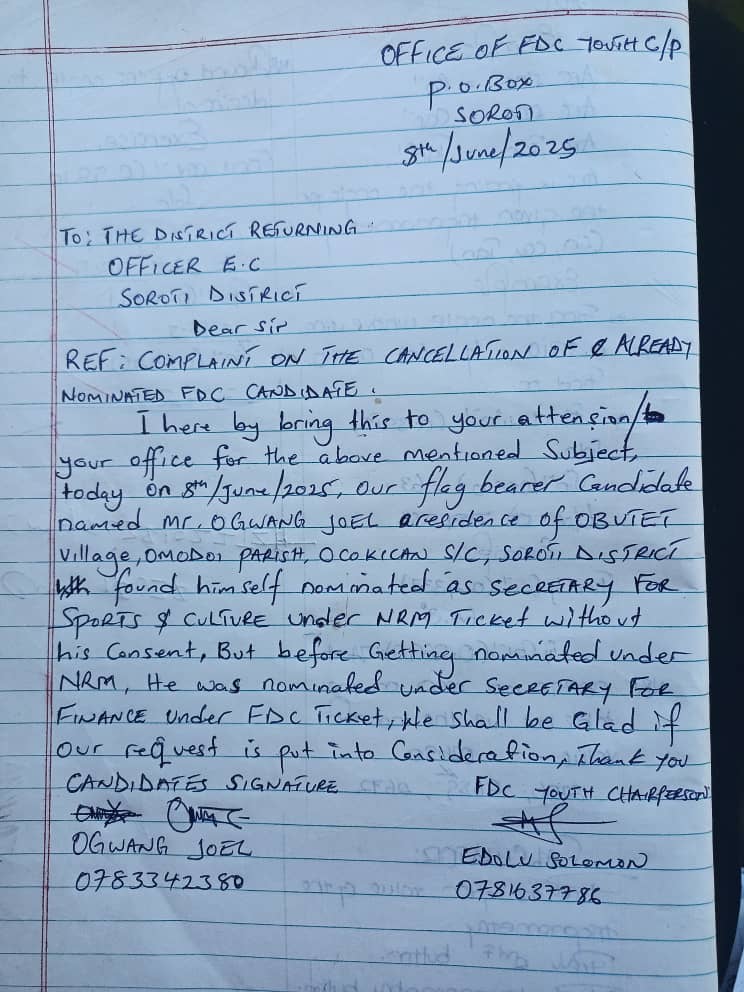 OFFICE OF FDC YOUTH C/P
P.O.Box
SOROTI
8th/June/2025
TO: THE DISTRICT RETURNING
OFFICER E.C
SOROTI DISTRICT
Dear Sir
REF: COMPLAINT ON THE CANCELLATION OF ALREADY
NOMINATED FDC CANDIDATE.
I here by bring this to your attension/
your office for the above mentioned Subject,
today on 8th/June/2025, our flag bearer Candidate
named Mr. OGWANG JOEL aresidence of OBUTET
Village, OMODOI PARISH, OCOKICAN S/C, SOROTI DISTRICT
found himself nominated as SECRETARY FOR
SPORTS & CULTURE under NRM Ticket without
his Consent, But before Getting nominated under
NRM, He was nominated under SECRETARY FOR
FINANCE under FDC Ticket, We shall be Glad if
our request is put into Consideration, Thank you
CANDIDATES SIGNATURE
FDC YOUTH CHAIRPERSON
OGWANG JOEL
EDOLU SOLOMON
0783342380
0781637786